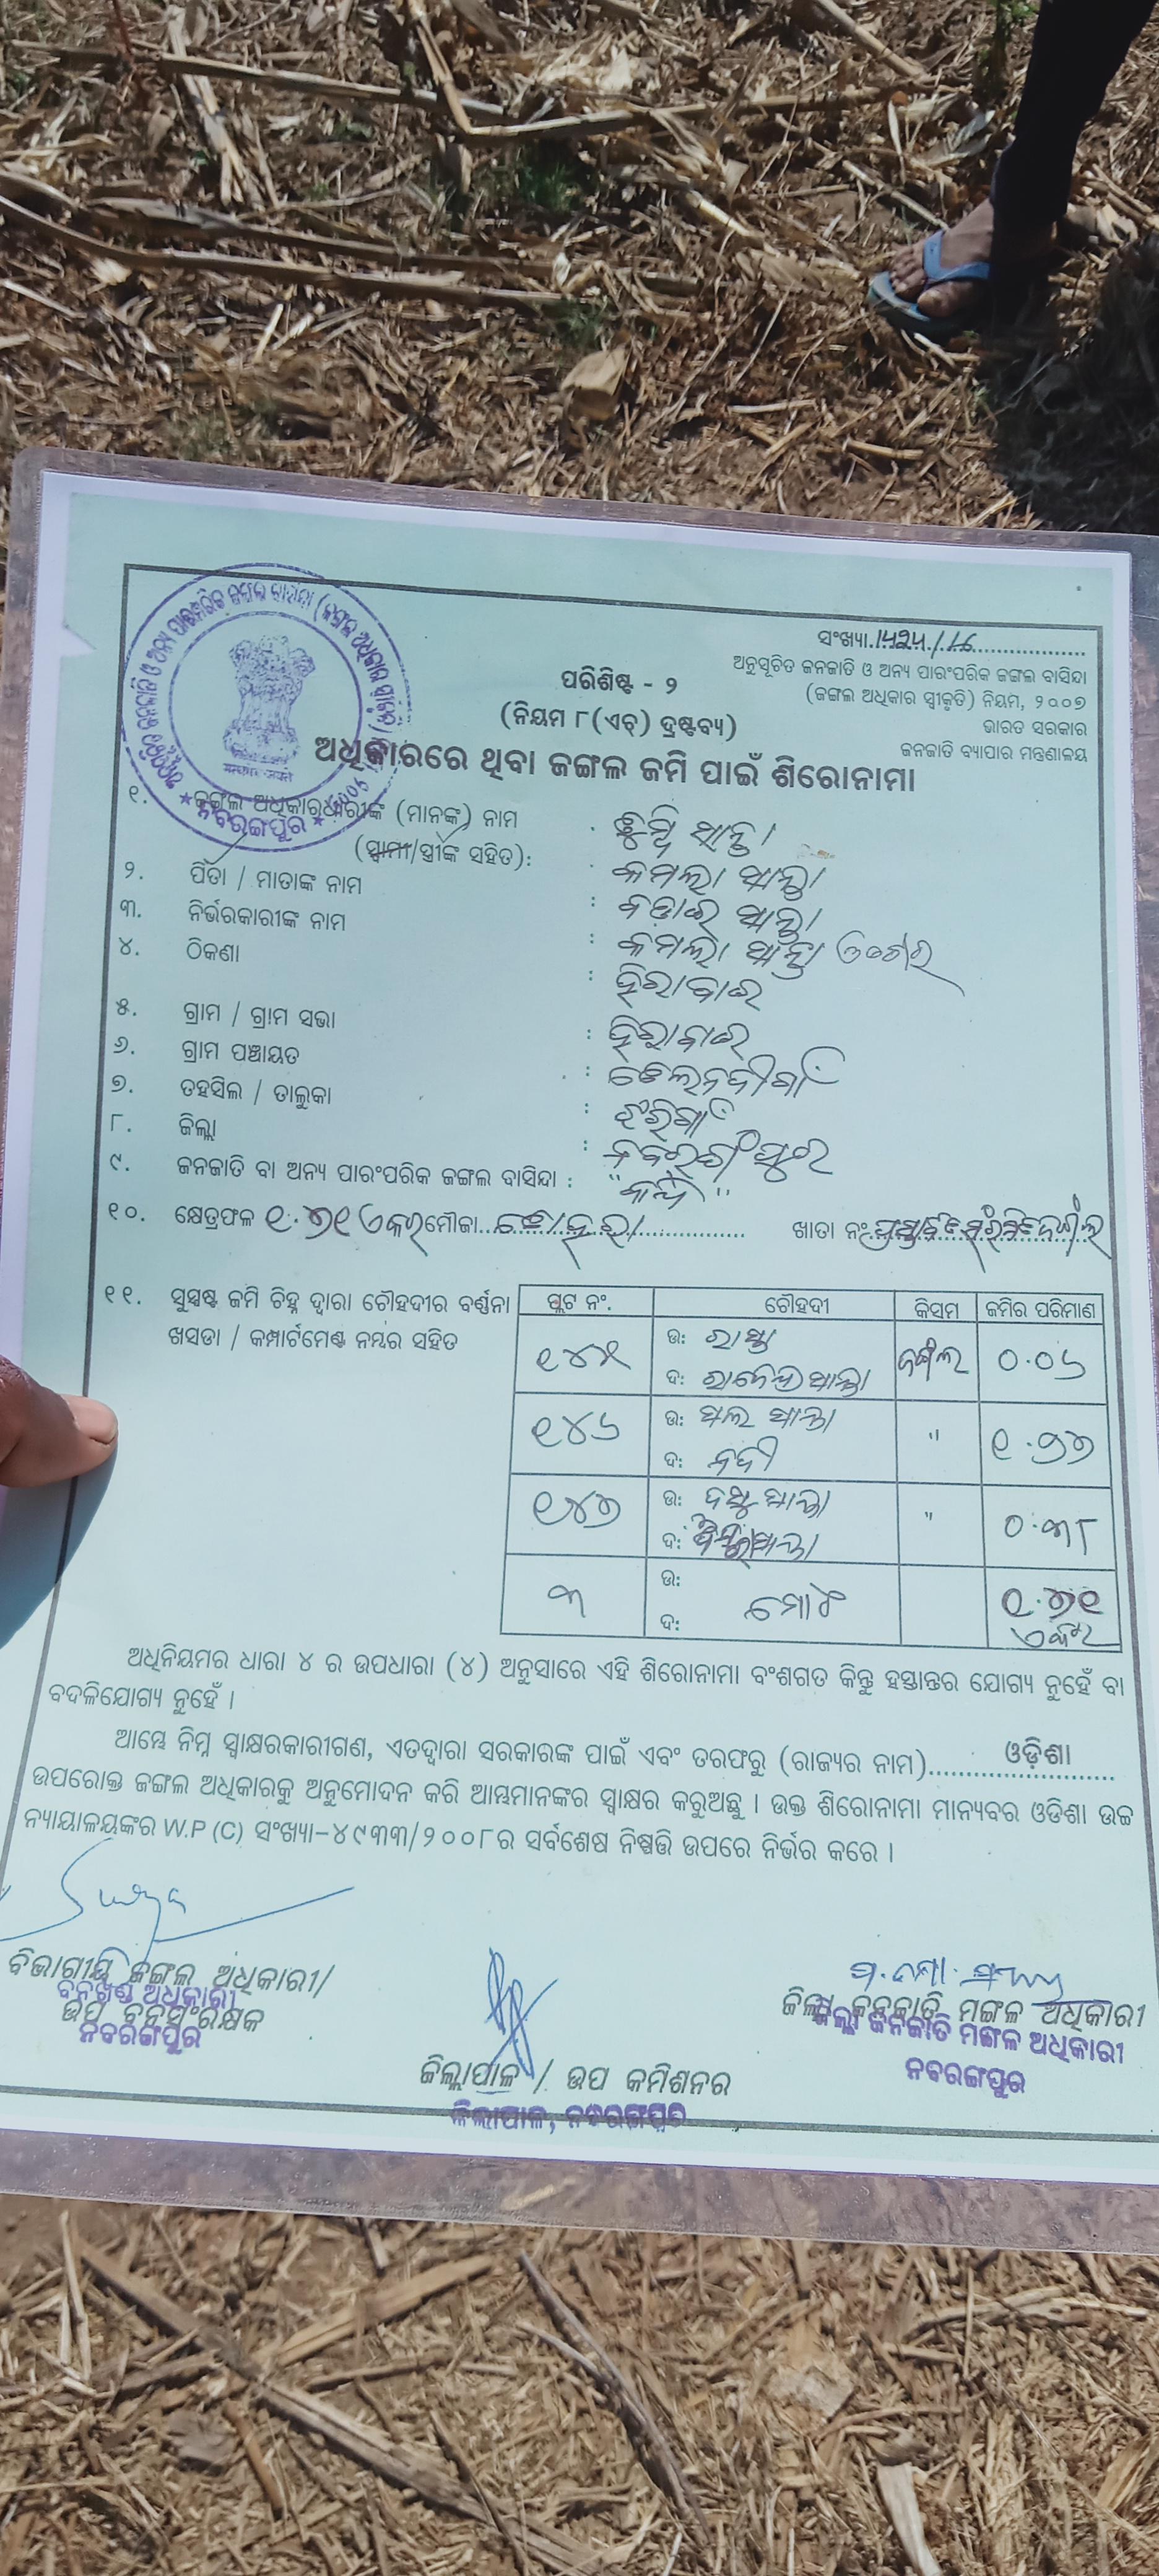 ସଂଖ୍ୟା
ଅନୁସୂଚିତ ଜନଜାତି ଓ ଅନ୍ୟ ପାରଂପରିକ ଜଙ୍ଗଲ ବାସିନ୍ଦା
(ଜଙ୍ଗଲ ଅଧିକାର ସ୍ୱୀକୃତି) ନିୟମ, ୨୦୦୭
ଭାରତ ସରକାର
ଜନଜାତି ବ୍ୟାପାର ମନ୍ତ୍ରଣାଳୟ
ପରିଶିଷ୍ଟ - ୨
(ନିୟମ ୮(ଏଚ୍) ଦ୍ରଷ୍ଟବ୍ୟ)
ଅଧିକାରରେ ଥିବା ଜଙ୍ଗଲ ଜମି ପାଇଁ ଶିରୋନାମା
ନବରଙ୍ଗପୁର
୧. ଜଙ୍ଗଲ ଅଧିକାରଧାରୀଙ୍କ (ମାନଙ୍କ) ନାମ :
(ସ୍ୱାମୀ/ସ୍ତ୍ରୀଙ୍କ ସହିତ): କମଲା ସାନ୍ତା
୨. ପିତା / ମାତାଙ୍କ ନାମ : ସାନ୍ତା
୩. ନିର୍ଭରକାରୀଙ୍କ ନାମ : କମଲା ସାନ୍ତା
୪. ଠିକଣା : ହିରାବାଇ
୫. ଗ୍ରାମ / ଗ୍ରାମ ସଭା : ହିରାବାଇ
୬. ଗ୍ରାମ ପଞ୍ଚାୟତ :
୭. ତହସିଲ / ତାଲୁକା : ଝରିଗାଁ
୮. ଜିଲ୍ଲା : ନବରଙ୍ଗପୁର
୯. ଜନଜାତି ବା ଅନ୍ୟ ପାରଂପରିକ ଜଙ୍ଗଲ ବାସିନ୍ଦା :
୧୦. କ୍ଷେତ୍ରଫଳ ୧.୭୧ ଏକର ମୌଜା ଖାତା ନଂ
୧୧. ସୁସ୍ପଷ୍ଟ ଜମି ଚିହ୍ନ ଦ୍ୱାରା ଚୌହଦୀର ବର୍ଣ୍ଣନା
ଖସଡା / କମ୍ପାର୍ଟମେଣ୍ଟ ନମ୍ବର ସହିତ
ପ୍ଲଟ ନଂ. ଚୌହଦୀ କିସମ ଜମିର ପରିମାଣ
୧୪୫ ଉ: ରାସ୍ତା ଜଙ୍ଗଲ ୦.୦୬
ଦ: ରାଜେନ୍ଦ୍ର ସାନ୍ତା
୧୪୬ ଉ: ସାନ୍ତା " ୧.୨୭
ଦ: ନଦୀ
୧୪୭ ଉ: ସାନ୍ତା " ୦.୩୮
ଦ: ସାନ୍ତା
୩ ଉ: ମୋଟ ୧.୭୧
ଦ: ଏକର
ଅଧିନିୟମର ଧାରା ୪ ର ଉପଧାରା (୪) ଅନୁସାରେ ଏହି ଶିରୋନାମା ବଂଶଗତ କିନ୍ତୁ ହସ୍ତାନ୍ତର ଯୋଗ୍ୟ ନୁହେଁ ବା
ବଦଳିଯୋଗ୍ୟ ନୁହେଁ ।
ଆମ୍ଭେ ନିମ୍ନ ସ୍ୱାକ୍ଷରକାରୀଗଣ, ଏତଦ୍ୱାରା ସରକାରଙ୍କ ପାଇଁ ଏବଂ ତରଫରୁ (ରାଜ୍ୟର ନାମ) ଓଡ଼ିଶା
ଉପରୋକ୍ତ ଜଙ୍ଗଲ ଅଧିକାରକୁ ଅନୁମୋଦନ କରି ଆମ୍ଭମାନଙ୍କର ସ୍ୱାକ୍ଷର କରୁଅଛୁ । ଉକ୍ତ ଶିରୋନାମା ମାନ୍ୟବର ଓଡିଶା ଉଚ୍ଚ
ନ୍ୟାୟାଳୟଙ୍କର W.P (C) ସଂଖ୍ୟା-୪୯୩୩/୨୦୦୮ର ସର୍ବଶେଷ ନିଷ୍ପତ୍ତି ଉପରେ ନିର୍ଭର କରେ ।
ବିଭାଗୀୟ ଜଙ୍ଗଲ ଅଧିକାରୀ/
ବନଖଣ୍ଡ ଅଧିକାରୀ
ଉପ ବନସଂରକ୍ଷକ
ନବରଙ୍ଗପୁର
ଜିଲ୍ଲା ଜନଜାତି ମଙ୍ଗଳ ଅଧିକାରୀ
ଜିଲ୍ଲା ଜନଜାତି ମଙ୍ଗଳ ଅଧିକାରୀ
ନବରଙ୍ଗପୁର
ଜିଲ୍ଲାପାଳ / ଉପ କମିଶନର
ଜିଲ୍ଲାପାଳ, ନବରଙ୍ଗପୁର